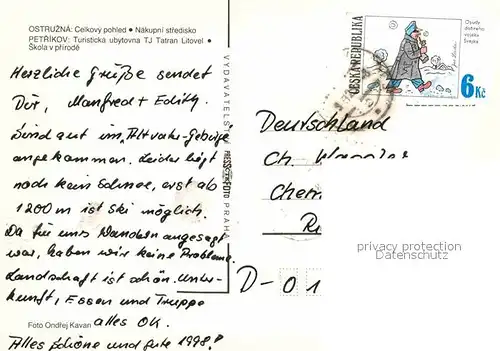 OSTRUŽNÁ: Celkový pohled ● Nákupní středisko
PETŘÍKOV: Turistická ubytovna TJ Tatran Litovel ●
Škola v přírodě
Herzliche Grüße sendet
Dir, Manfred + Edith.
Sind gut im „Altvater-Gebirge
angekommen. Leider liegt
noch kein Schnee, erst ab
1200 m ist Ski möglich.
Da für uns Wandern angesagt
war, haben wir keine Probleme.
Landschaft ist schön. Unter-
kunft, Essen und Truppe
alles OK.
Alles Schöne und gute 1998!
Foto Ondřej Kavan
VYDAVATELSTVÍ PRESSFOTO PRAHA
ČESKÁ REPUBLIKA
Osudy
dobrého
vojáka
Švejka
6 Kč
Deutschland
Ch.
Chem
D-01
privacy protection
Datenschutz